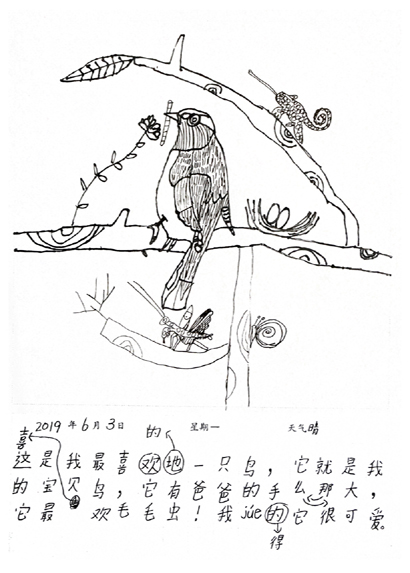 2019年6月3日 星期一 天气晴
的
喜
这是我最喜欢地一只鸟，它就是我
的宝贝鸟，它有爸爸的手么那大，
它最欢毛毛虫！我júe的它很可爱。
得